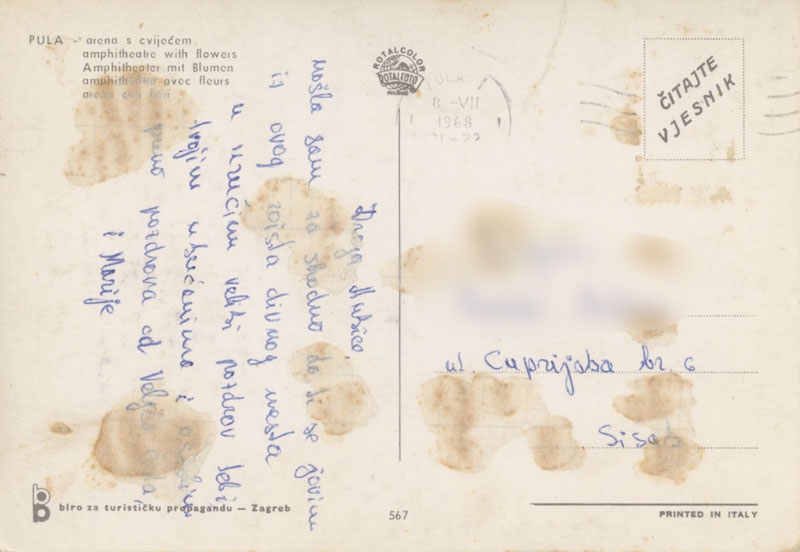 PULA - arena s cvijećem
amphitheatre with flowers
Amphitheater mit Blumen
amphithéâtre avec fleurs
arena con fiori
ROTALCOLOR
ROTALFOTO
MILANO
PULA
8.-VII
1968
21-22
ČITAJTE
VJESNIK
Draga
našla sam za shodno da ti se javim
iz ovog zaista divnog mesta
u vrućim veliki pozdrav tebi
tvojim i
puno pozdrava od Veljko
i Marije
ul. Caprijska br. 6
Sisak
biro za turističku propagandu — Zagreb
567
PRINTED IN ITALY